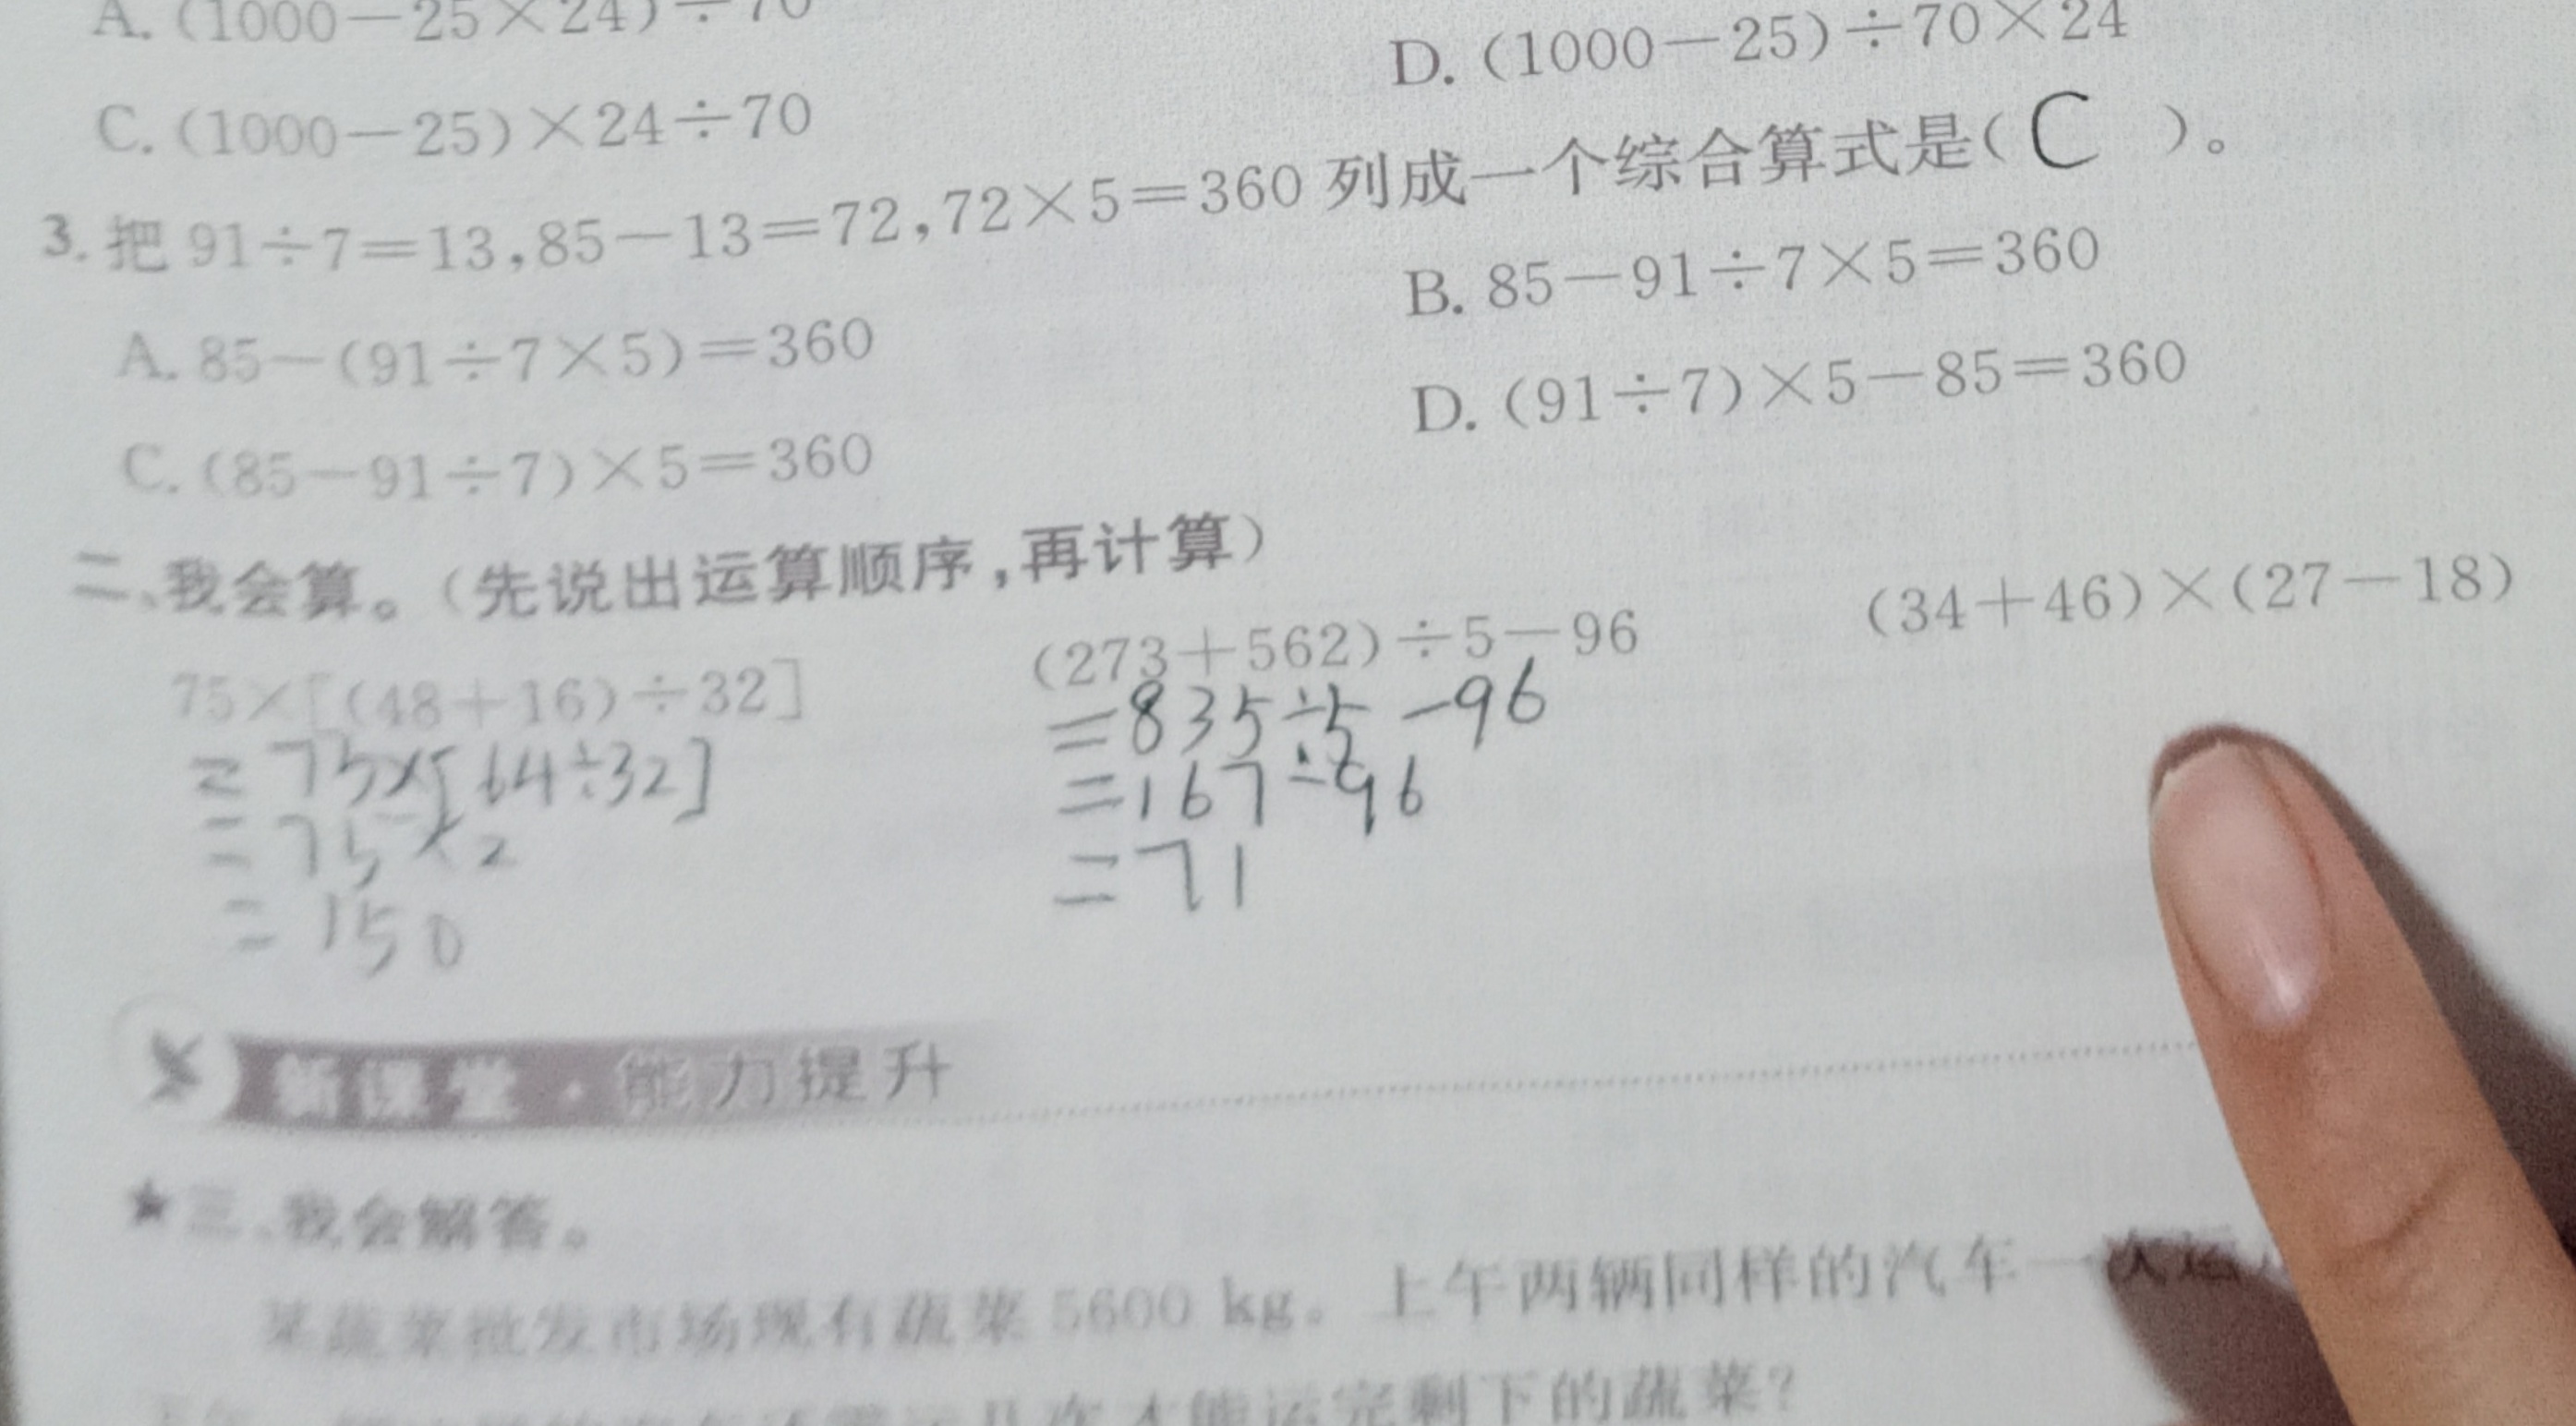 A. (1000－25×24)÷70
D. (1000－25)÷70×24
C. (1000－25)×24÷70
3. 把 91÷7=13,85－13=72,72×5=360 列成一个综合算式是( C )。
A. 85－(91÷7×5)=360
B. 85－91÷7×5=360
C. (85－91÷7)×5=360
D. (91÷7)×5－85=360
二、我会算。(先说出运算顺序,再计算)
75×[(48＋16)÷32]
(273＋562)÷5－96
(34＋46)×(27－18)
=75×[64÷32]
=75×2
=150
=835÷5－96
=167－96
=71
新课堂·能力提升
★三、我会解答。
某蔬菜批发市场现有蔬菜 5600 kg。上午两辆同样的汽车一次运
才能运完剩下的蔬菜?